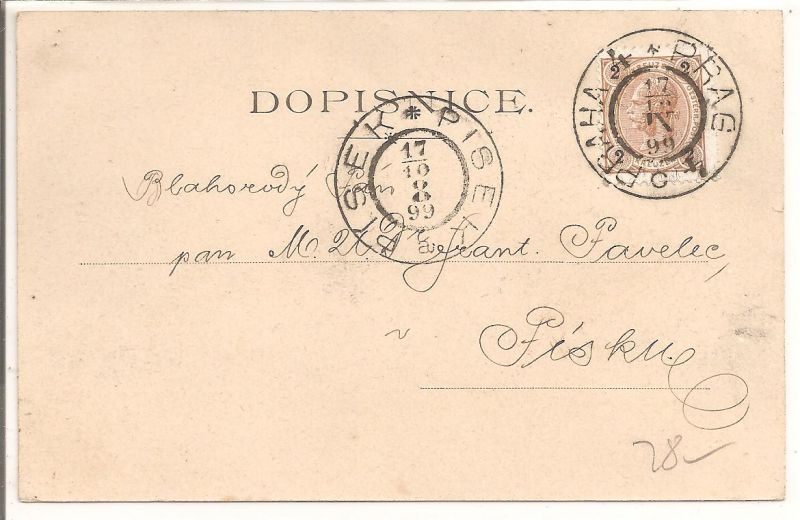 DOPISNICE.
PRAHA * PRAG
17
99
PISEK * PISEK
17
10
8
99
Blahorodý Pan
pan M. U. Dr. Frant. Pavelec,
v
Písku
28-